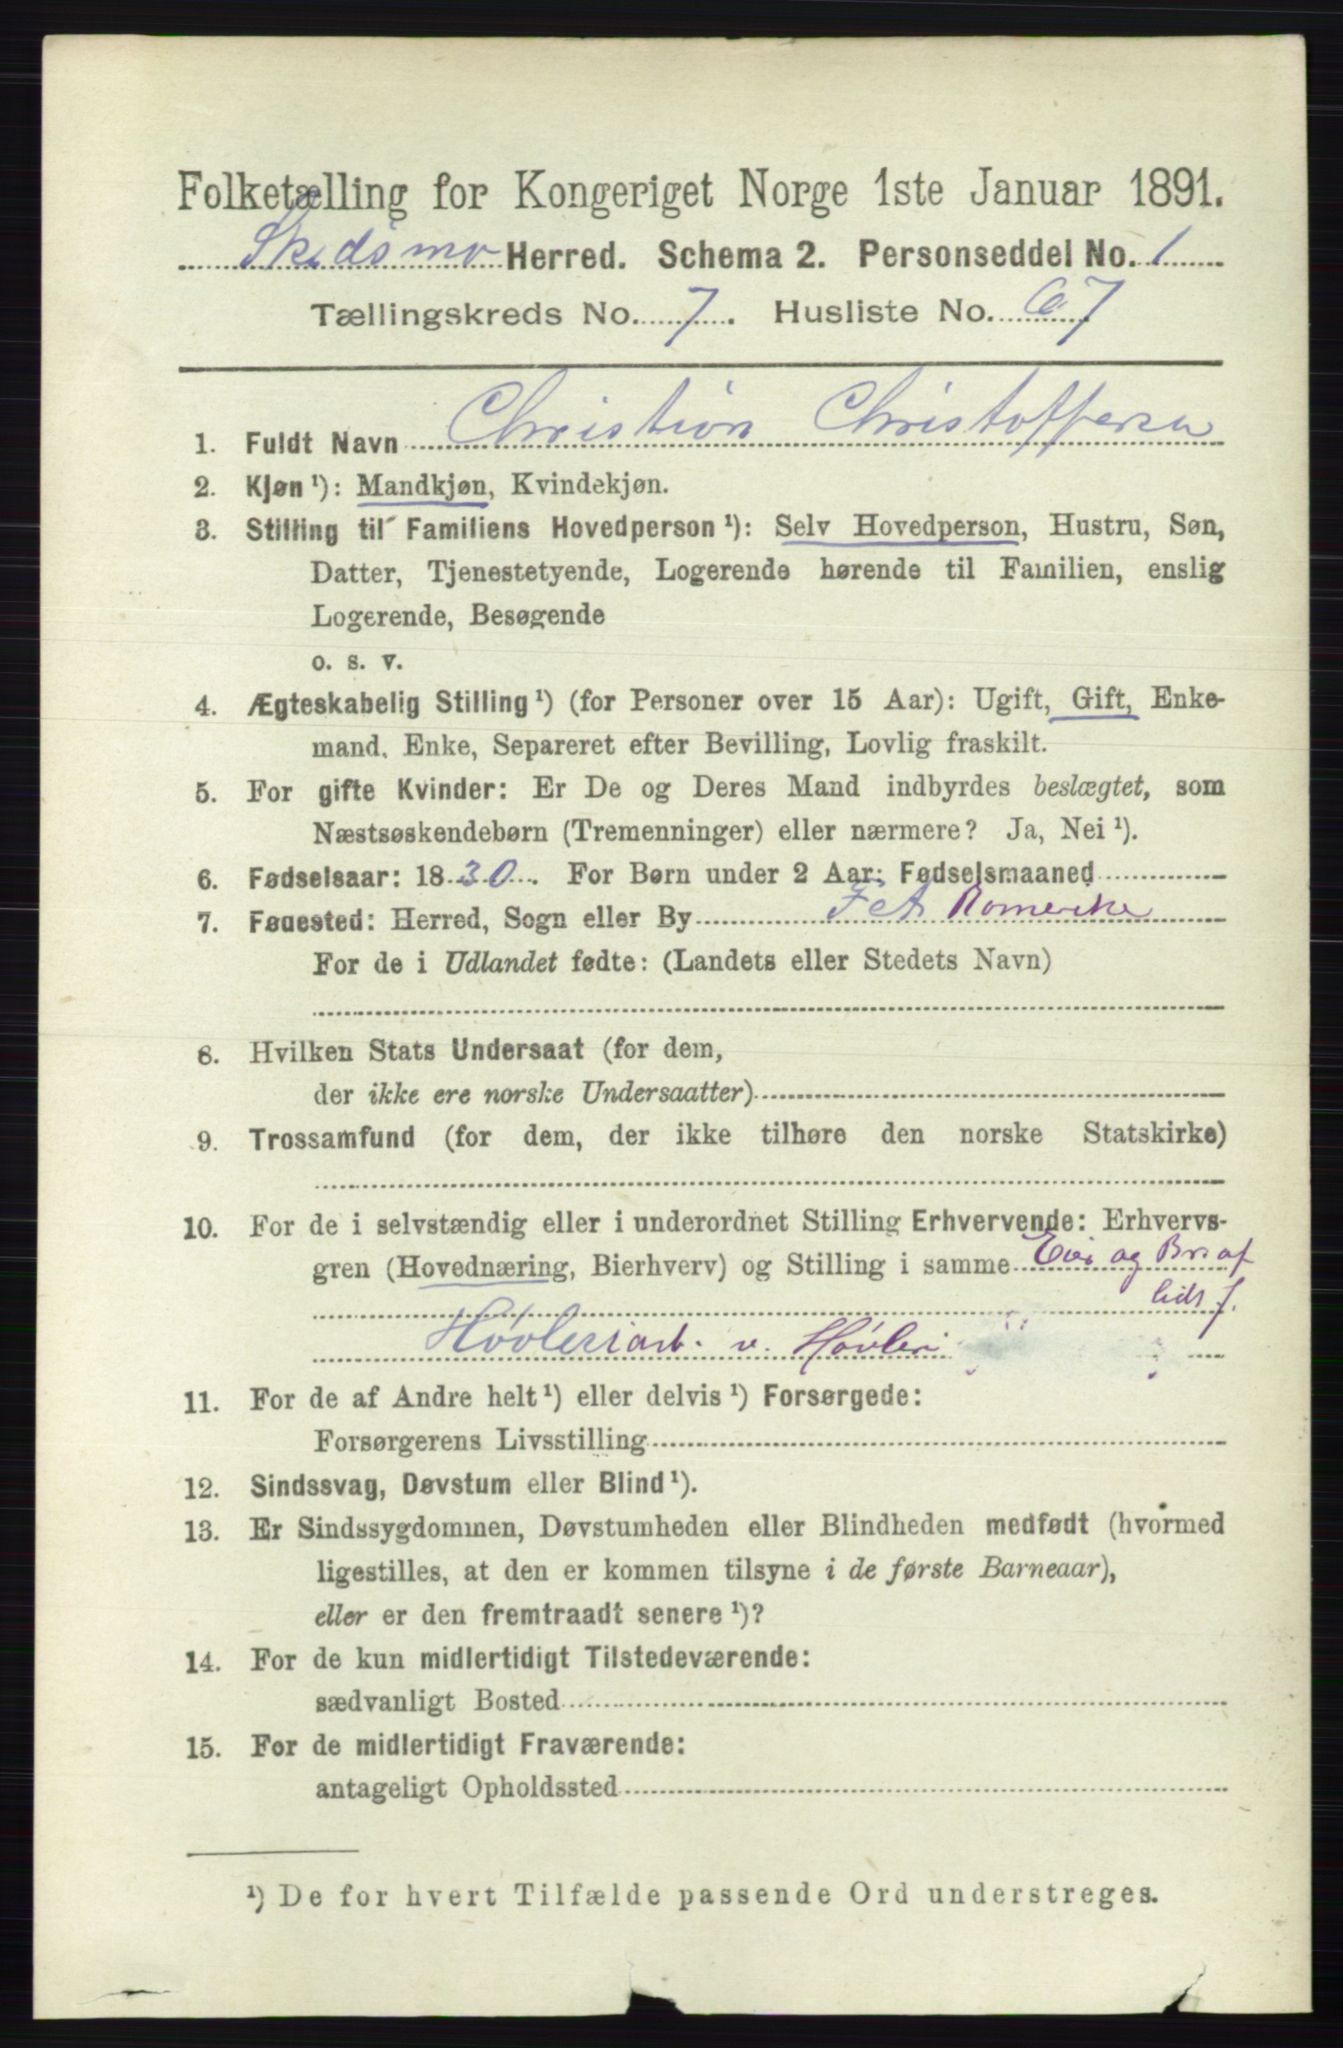 Folketælling for Kongeriget Norge 1ste Januar 1891.
Skedsmo Herred. Schema 2. Personseddel No. 1
Tællingskreds No. 7. Husliste No. 67
1. Fuldt Navn Christian Christoffersen
2. Kjøn ¹): Mandkjøn, Kvindekjøn.
3. Stilling til Familiens Hovedperson ¹): Selv Hovedperson, Hustru, Søn,
Datter, Tjenestetyende, Logerende hørende til Familien, enslig
Logerende, Besøgende
o. s. v.
4. Ægteskabelig Stilling ¹) (for Personer over 15 Aar): Ugift, Gift, Enke-
mand, Enke, Separeret efter Bevilling, Lovlig fraskilt.
5. For gifte Kvinder: Er De og Deres Mand indbyrdes beslægtet, som
Næstsøskendebørn (Tremenninger) eller nærmere? Ja, Nei ¹).
6. Fødselsaar: 1830. For Børn under 2 Aar: Fødselsmaaned
7. Fødested: Herred, Sogn eller By Fet Romerike
For de i Udlandet fødte: (Landets eller Stedets Navn)
8. Hvilken Stats Undersaat (for dem,
der ikke ere norske Undersaatter)
9. Trossamfund (for dem, der ikke tilhøre den norske Statskirke)
10. For de i selvstændig eller i underordnet Stilling Erhvervende: Erhvervs-
gren (Hovednæring, Bierhverv) og Stilling i samme Eier og Br. af
lidt J.
Høvleriarb. v. Høvleri
11. For de af Andre helt ¹) eller delvis ¹) Forsørgede:
Forsørgerens Livsstilling
12. Sindssvag, Døvstum eller Blind ¹).
13. Er Sindssygdommen, Døvstumheden eller Blindheden medfødt (hvormed
ligestilles, at den er kommen tilsyne i de første Barneaar),
eller er den fremtraadt senere ¹)?
14. For de kun midlertidigt Tilstedeværende:
sædvanligt Bosted
15. For de midlertidigt Fraværende:
antageligt Opholdssted
¹) De for hvert Tilfælde passende Ord understreges.